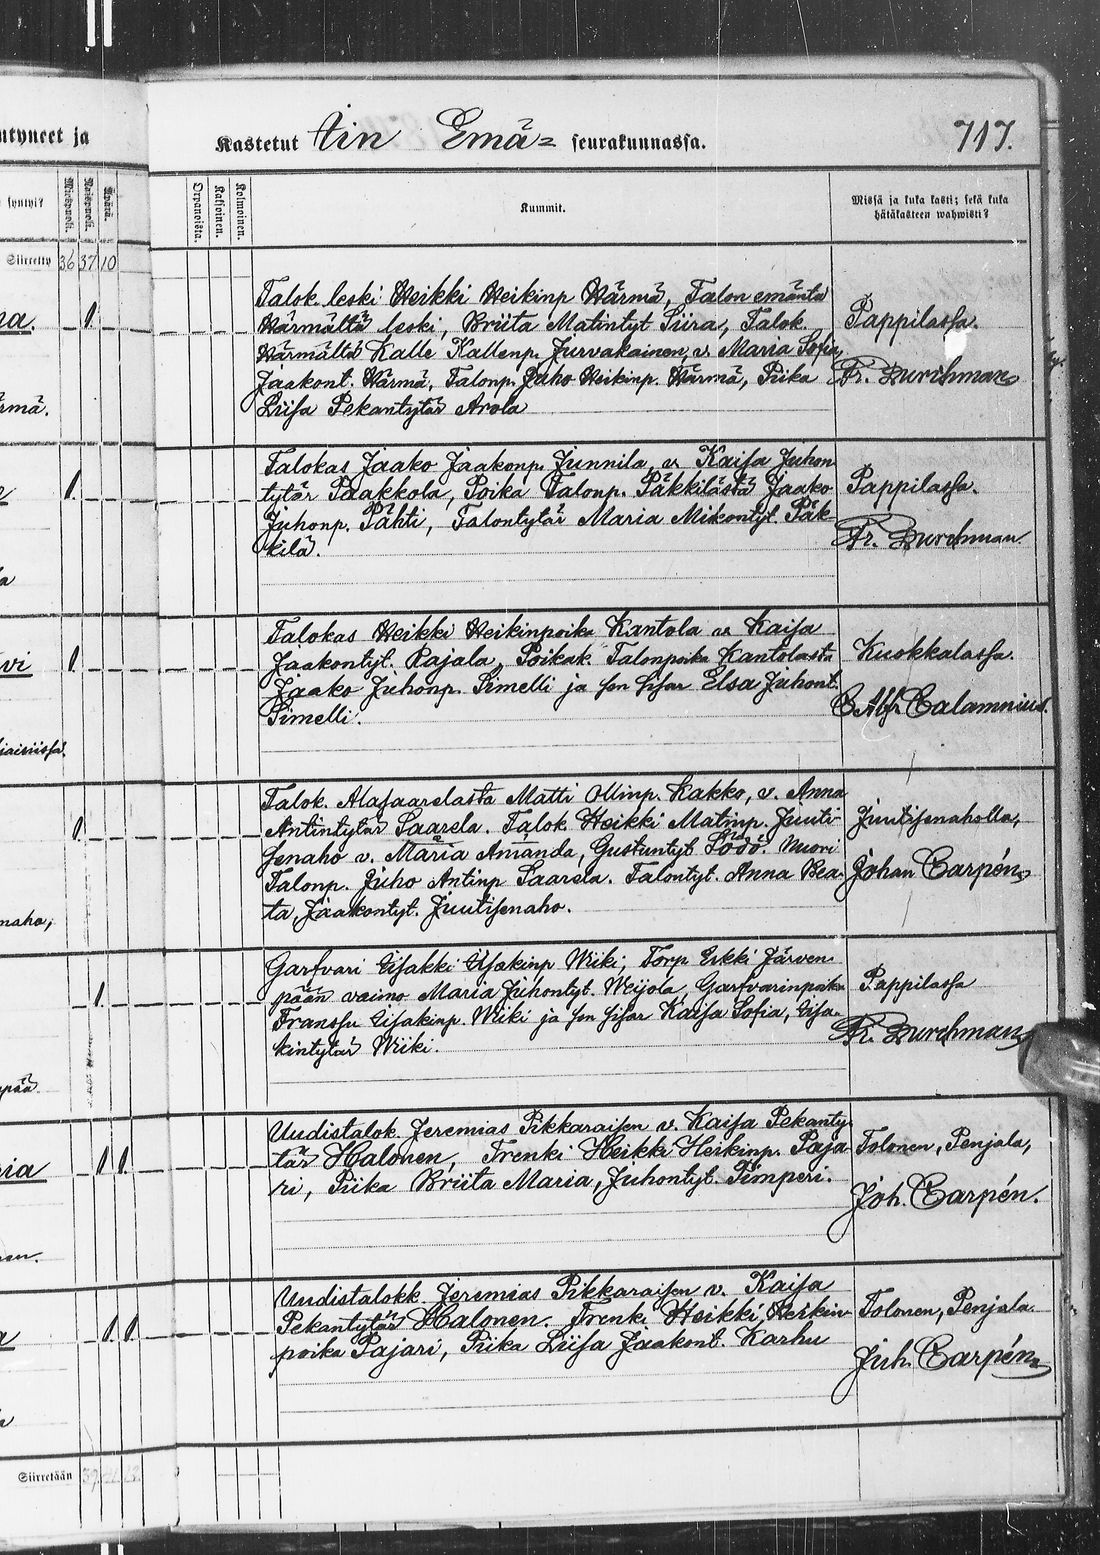 ntyneet ja
Kastetut Iin Emä= seurakunnassa. 717.
syntyi?
Miespuoli.
Vaispuoli.
Äpärä.
Orpanoista.
Kaksoinen.
Kolmoinen.
Kummit.
Missä ja kuka kasti; sekä kuka
hätäkasteen wahwisti?
Siirretty 36 37 10
Talok. leski Heikki Heikinp Härmä, Talon emäntä
Härmältä leski, Briita Matintyt Siira, Talok.
Härmältä Kalle Kallenp. Jurvakainen, v. Maria Sofia,
Jaakont. Härmä, Talonp. Juho Heikinp. Härmä, Piika
Liisa Pekantytär Arola
Pappilassa.
Fr. Durchman
ärmä.
Talokas Jaako Jaakonp. Junnila, v. Kaisa Juhon
tytär Paakkola, Poika Talonp. Päkkilästä Jaako
Juhonp. Pähti, Talontytär Maria Mikontyt. Päk-
kilä.
Pappilassa.
Fr. Durchman
Talokas Heikki Heikinpoika Kantola v. Kaisa
Jaakontyt. Rajala, Poikak. Talonpoika Kantolasta
Jaako Juhonp. Simelli ja sen sisar Elsa Juhont.
Simelli.
Kuokkalassa.
C Abr Calamnius.
Talok. Alasaarelasta Matti Ollinp. Kakko, v. Anna
Antintytär Saarela. Talok Heikki Matinp. Juuti-
senaho v. Maria Amanda, Gustuntyt Södö. Nuori
Talonp. Juho Antinp Saarela. Talontyt. Anna Bea-
ta, Jaakontyt. Juutisenaho.
Juutisenaholla,
Johan Carpén
naho,
Garfvari Eisakki Eisakinp Wiiki, Torp Erkki Järven
pään vaimo Maria Juhontyt. Weijola, Garfvarinpoika
Franssu Eisakinp. Wiiki ja sen sisar Kaisa Sofia, Eisa-
kintytär Wiiki.
Pappilassa
Fr. Durchman
Uudistalok. Jeremias Pikkaraisen v. Kaisa Pekanty-
tär Halonen, Trenki Heikki Heikinp. Paja-
ri, Piika Briita Maria, Juhontyt. Timperi.
Tolonen, Penjala,
Joh. Carpén.
Uudistalokk. Jeremias Pikkaraisen v. Kaisa
Pekantytär Halonen. Trenki Heikki, Heikin-
poika Pajari, Piika Liisa Jaakont. Karhu
Tolonen, Penjala
Joh. Carpén
Siirretään